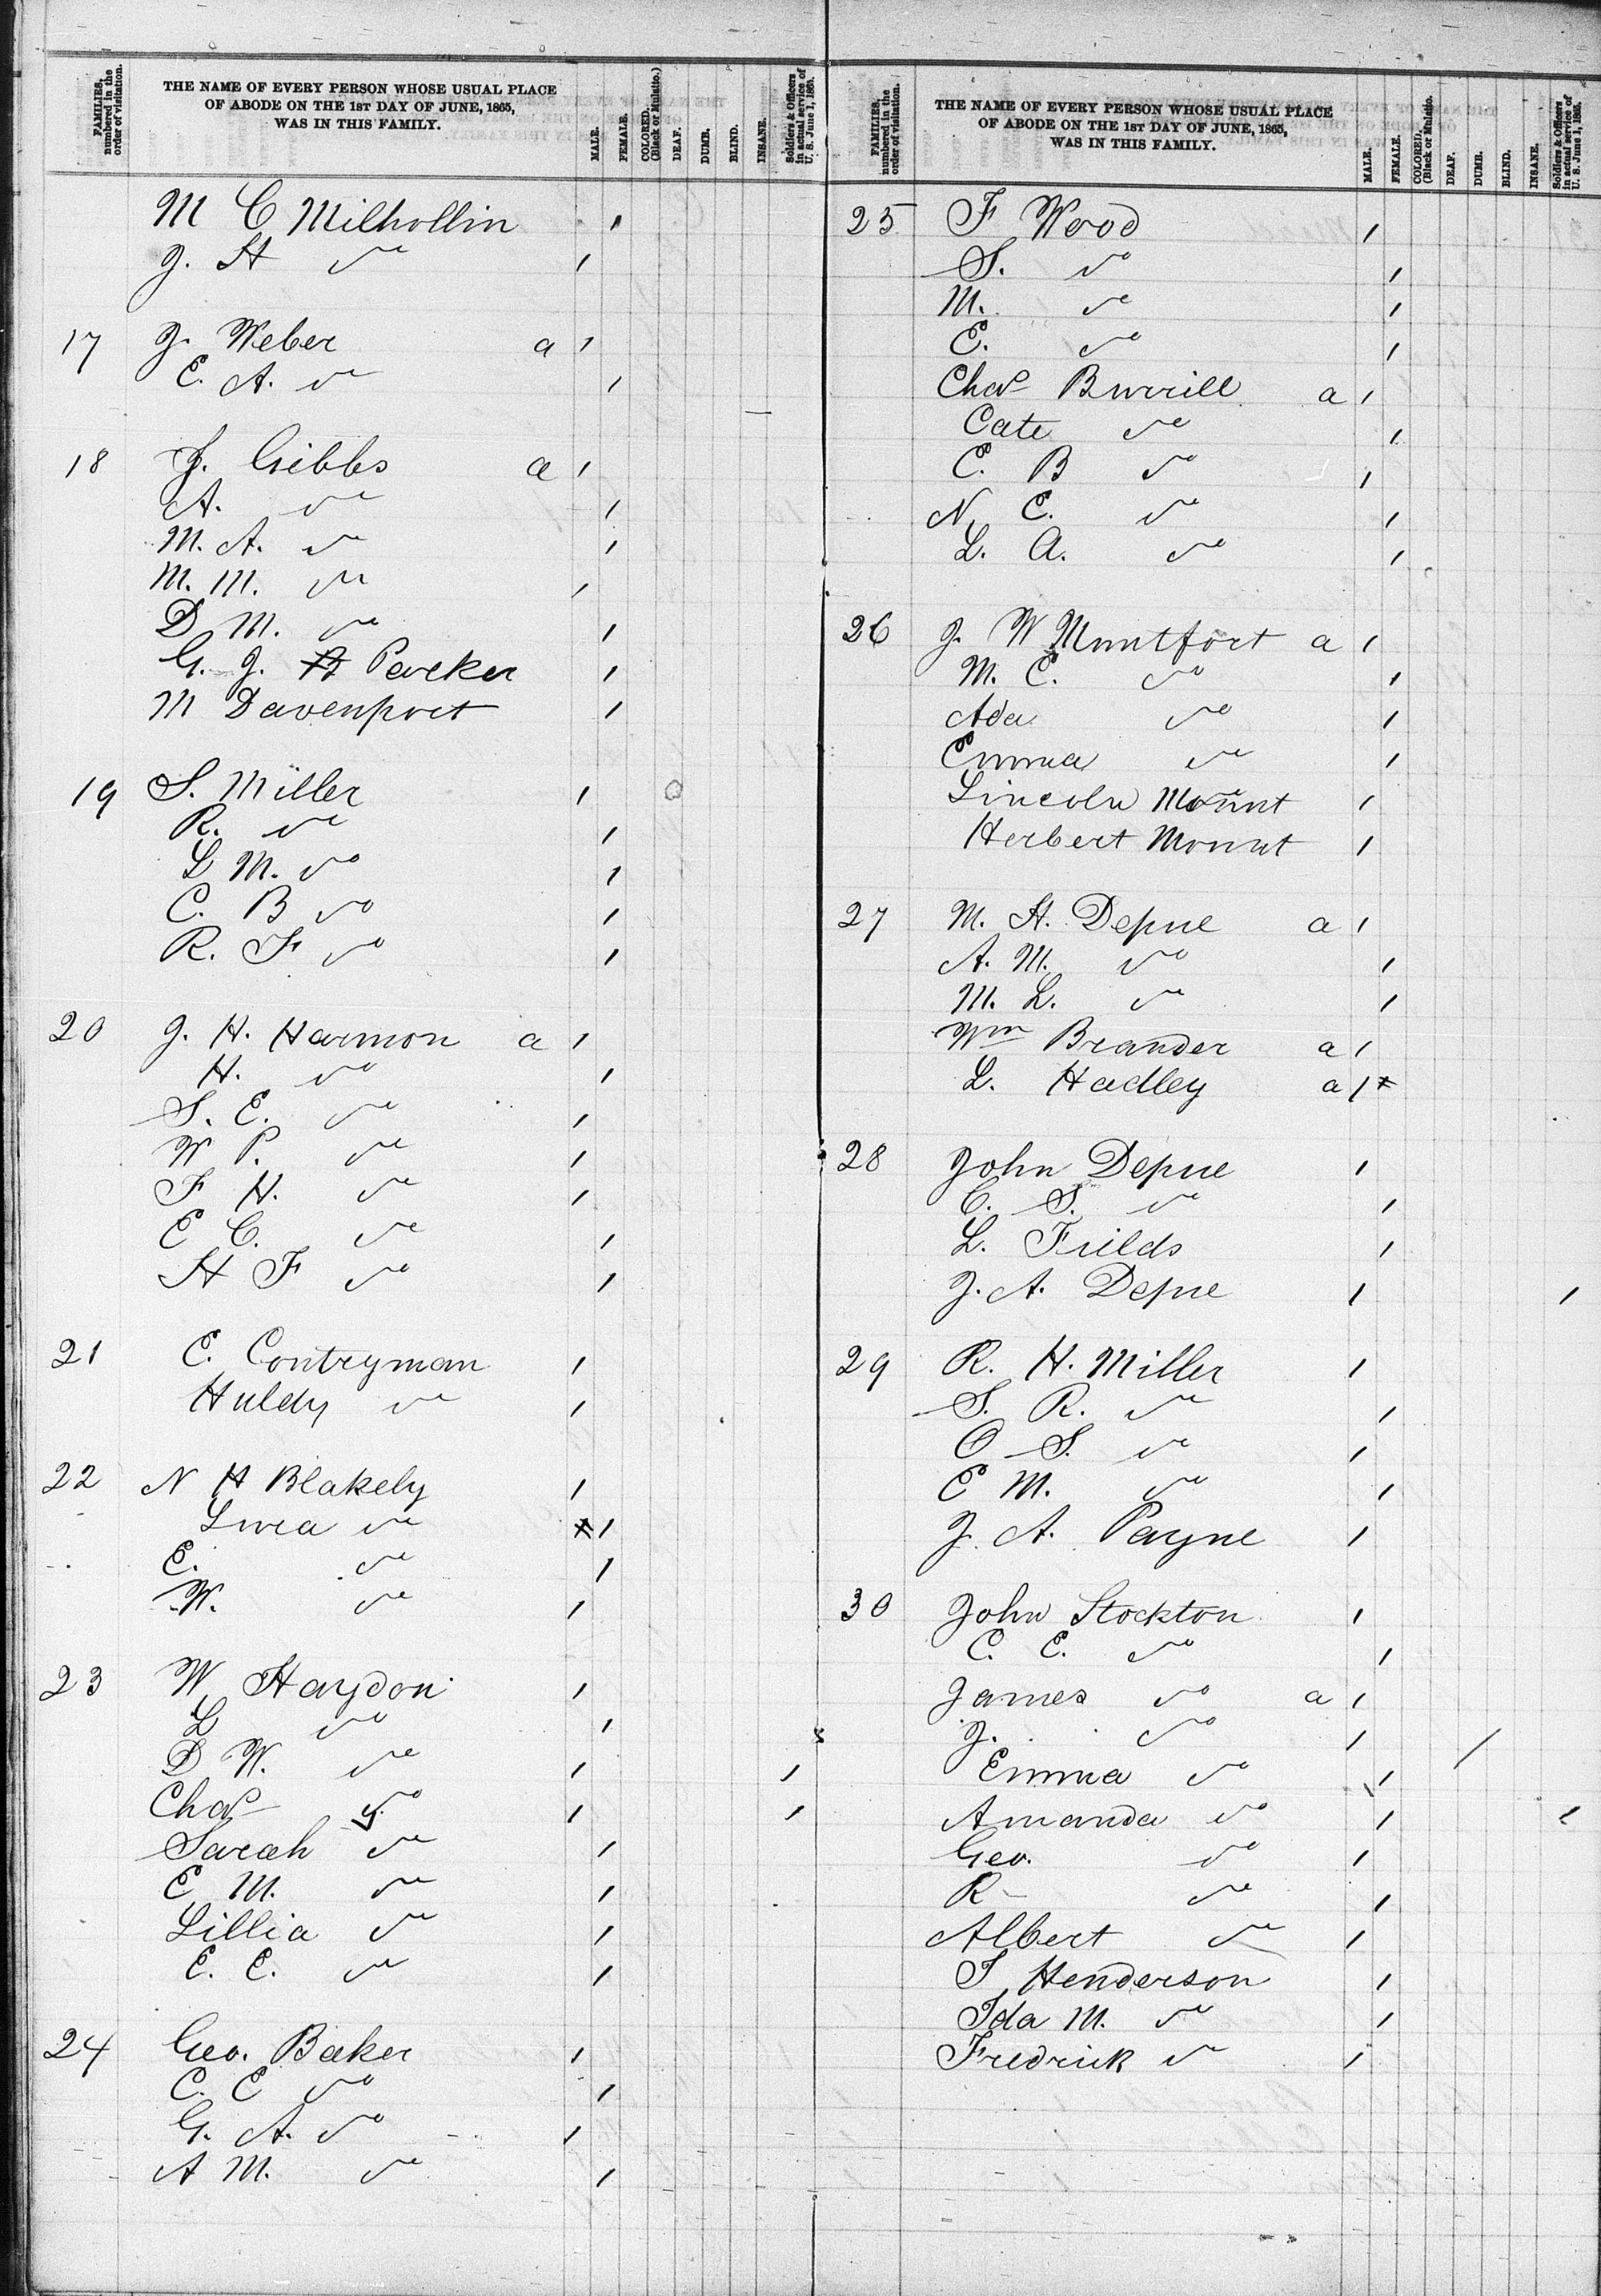 FAMILIES, numbered in the order of visitation.
THE NAME OF EVERY PERSON WHOSE USUAL PLACE
OF ABODE ON THE 1ST DAY OF JUNE, 1865,
WAS IN THIS FAMILY.
MALE.
FEMALE.
COLORED. (Black or Mulatto.)
DEAF.
DUMB.
BLIND.
INSANE.
Soldiers & Officers in actual service of U. S. June 1, 1865.
M C Milhollin
J. H do
17 J. Weber a
E. A. do
18 J. Gibbs a
A. do
M. A. do
M. M. do
D M. do
G. J. Parker
M Davenport
19 S. Miller
R. do
L M. do
C. B do
R. F do
20 J. H. Harmon a
H. do
S. E. do
W P. do
F H. do
E C. do
H F do
21 C. Contryman
Huldy do
22 N H Blakely
do
E. do
W. do
23 W Haydon
L do
D W. do
Chas do
Sarah do
E M. do
Lillia do
E. E. do
24 Geo. Baker
C. E do
G. A. do
A M. do
FAMILIES, numbered in the order of visitation.
THE NAME OF EVERY PERSON WHOSE USUAL PLACE
OF ABODE ON THE 1ST DAY OF JUNE, 1865,
WAS IN THIS FAMILY.
MALE.
FEMALE.
COLORED. (Black or Mulatto.)
DEAF.
DUMB.
BLIND.
INSANE.
Soldiers & Officers in actual service of U. S. June 1, 1865.
25 F Wood
S. do
M. do
E. do
Chas Burrill a
Cate do
C. B do
N. E. do
L. A. do
26 J. W Muntfort a
M. E. do
Ada do
Emma do
Lincoln Mount
Herbert Mount
27 M. H. Depue a
A. M. do
M. L. do
Wm Brander a
L. Hadley a
28 John Depue
C. S. do
L. Fields
J. A. Depue
29 R. H. Miller
S. R. do
O S. do
E M. do
J. A. Payne
30 John Stockton
C. E. do
James do a
J. do
Emma do
Amanda do
Geo. do
R do
Albert do
Henderson
Ida M. do
Fredrick do